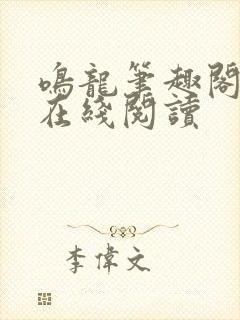 鳴龍筆趣閣
在綫閱讀
李偉文